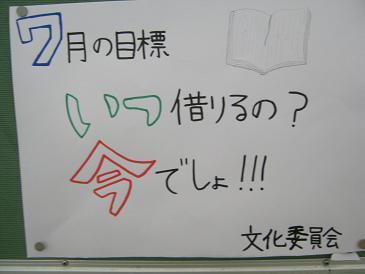 7月の目標
いつ借りるの？
今でしょ!!!
文化委員会